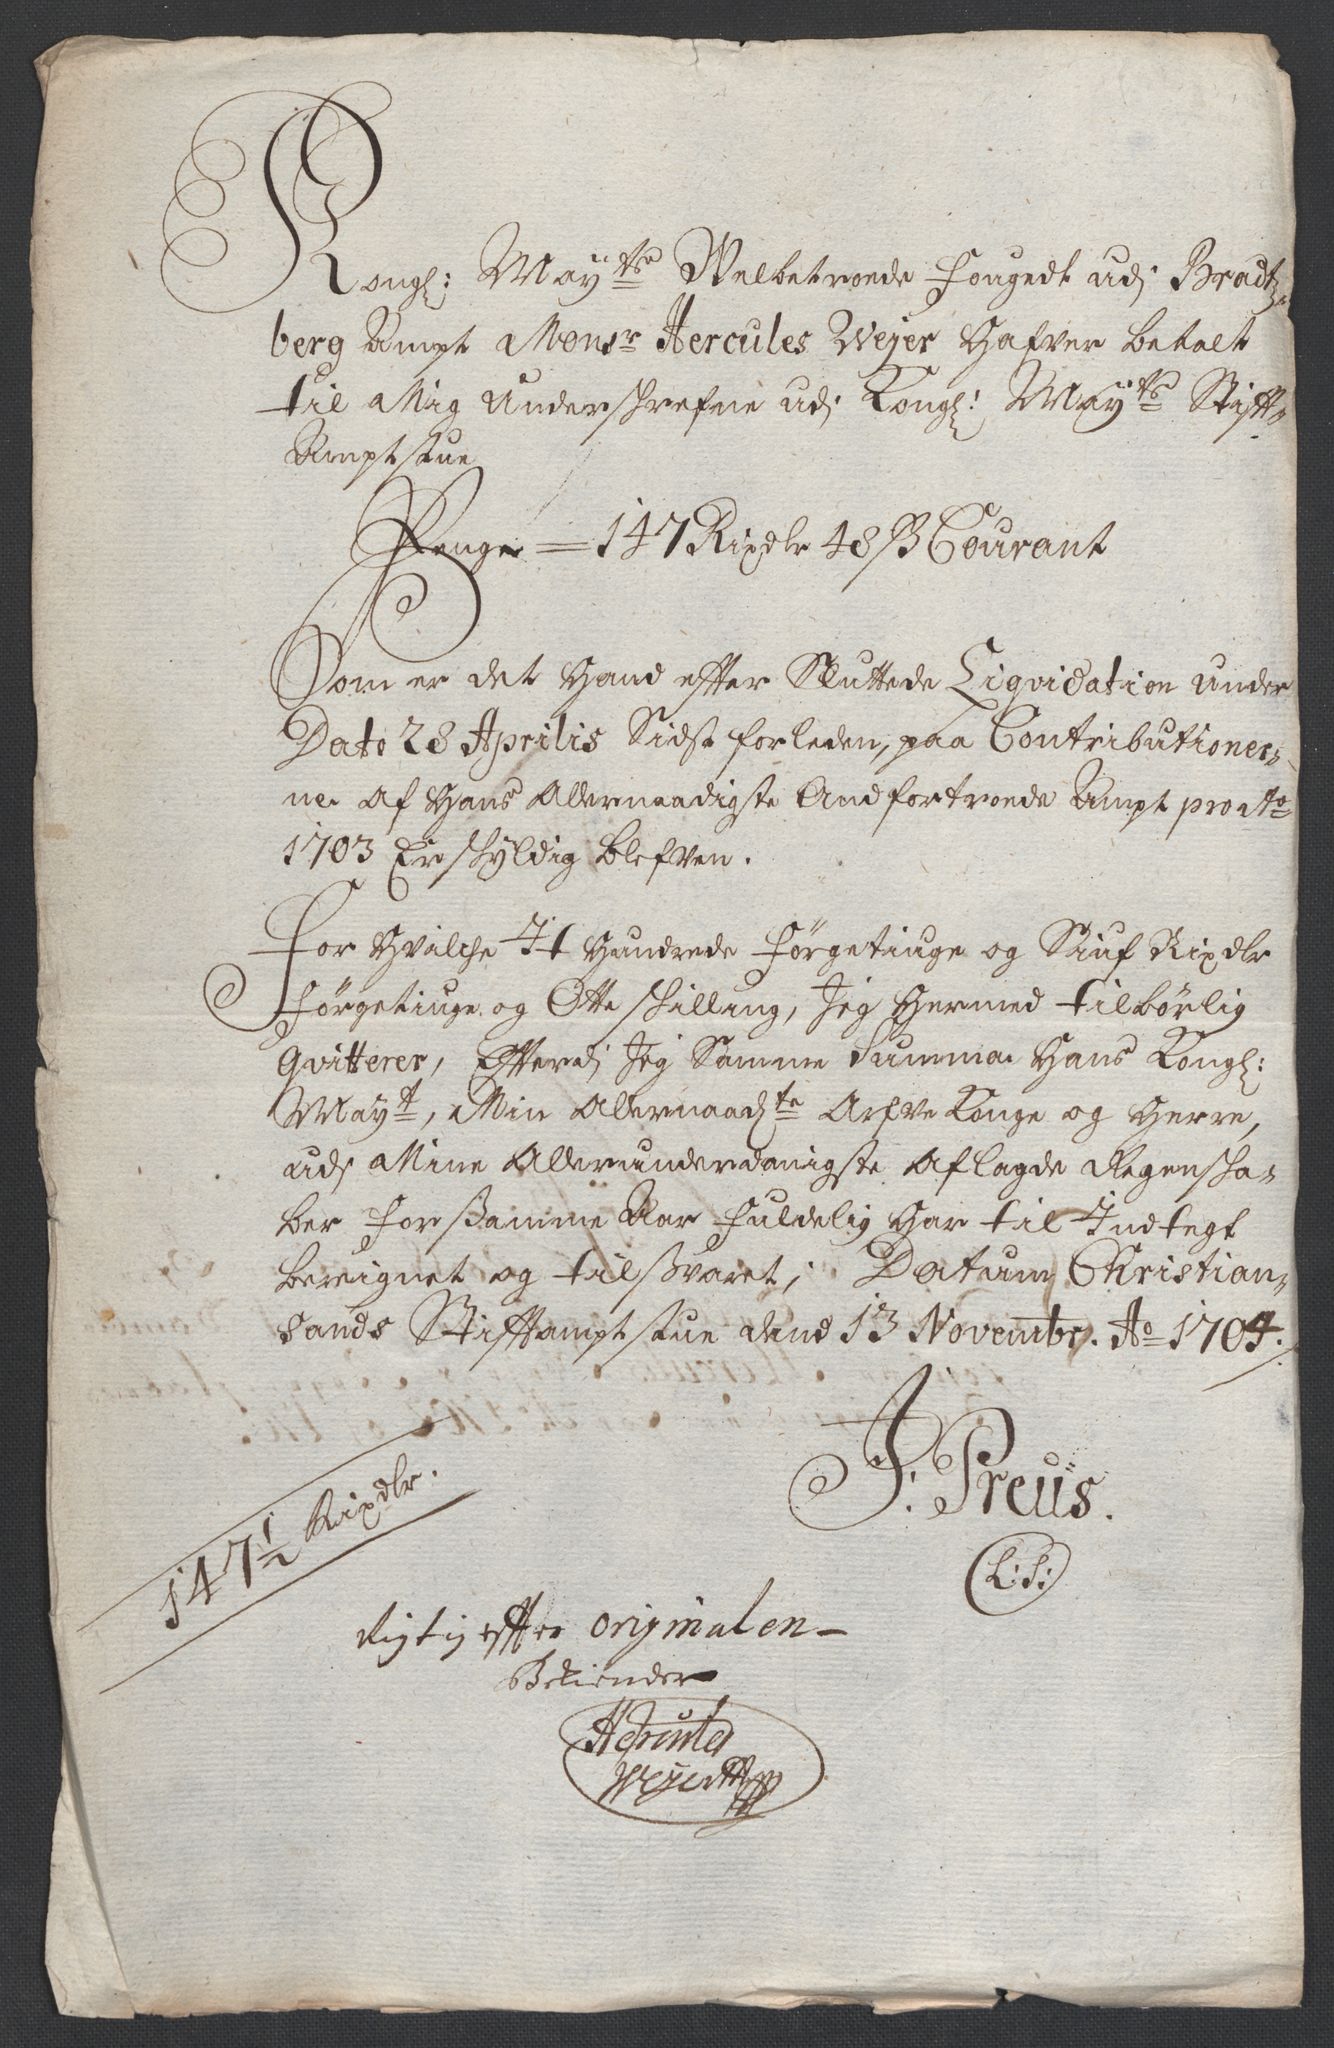 Kongl: May:ts Welbetroede Fougedt udj Bradtz-
berg Ampt Monsr Hercules Weyer Hafver betalt
til Mig Underschrefne udj Kongl: May:ts Stift-
Amptstue
Penge = 147 Rixdlr 48 ß Courant
Som er det Hand efter Sluttede Liqvidation under
Dato 28 Aprilis Sidst forleden, paa Contributioner-
ne af Hans Allernaadigste Andfortroede Ampt pro Ao
1703 Er schyldig blefven.
For Hvilche It Hundrede Førgetiuge og Siuf Rixdlr
Førgetiuge og Otte schilling, Jeg Hermed tilbørlig
Qvitterer, Efterdj Jeg Samme Summa Hans Kongl:
May:t, Min Allernaadte Arfve Konge og Herre,
udj Mine Allerunderdanigste Aflagde Regenscha-
ber for Samme Aar fuldelig Har til Indtegt
bereignet og tilßvaret, Datum Christian-
sands Stiftamptstue dend 13 Novembr. Ao 1704.
J: Preüs.
(L:S:)
147½ Rixdlr.
Rigtig efter originalen
Bekiender
Hercules
Weyer